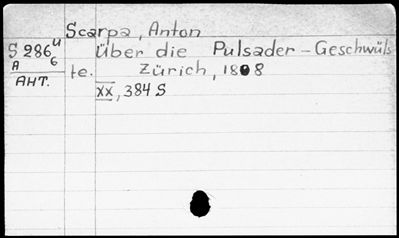 Scarpa, Anton
S 286 u
A 6
AHT.
Über die Pulsader-Geschwüls
te. Zürich, 1808
XX, 384 S